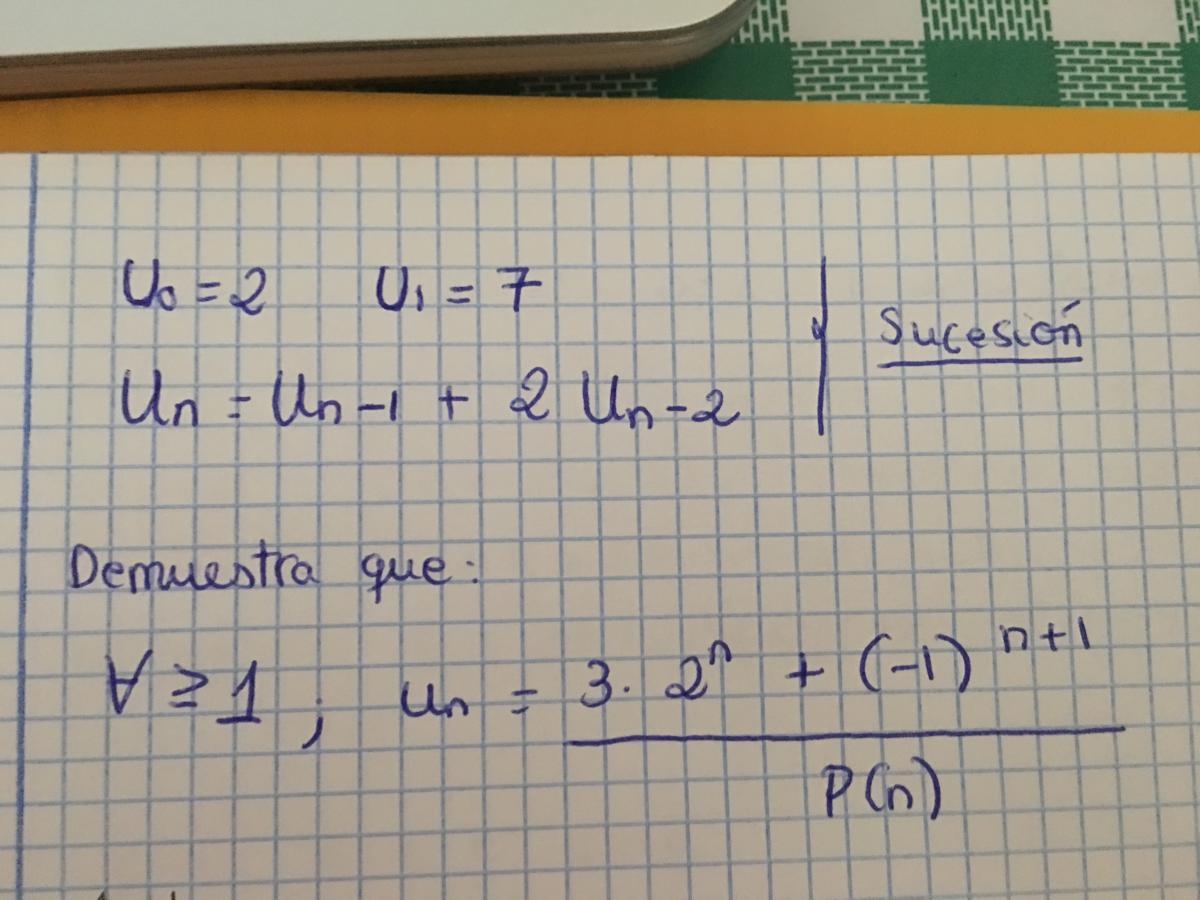 U₀ = 2 U₁ = 7
Uₙ = Uₙ₋₁ + 2 Uₙ₋₂
Sucesión
Demuestra que:
∀ ≥ 1 ; uₙ = 3 · 2ⁿ + (-1)ⁿ⁺¹
P(n)